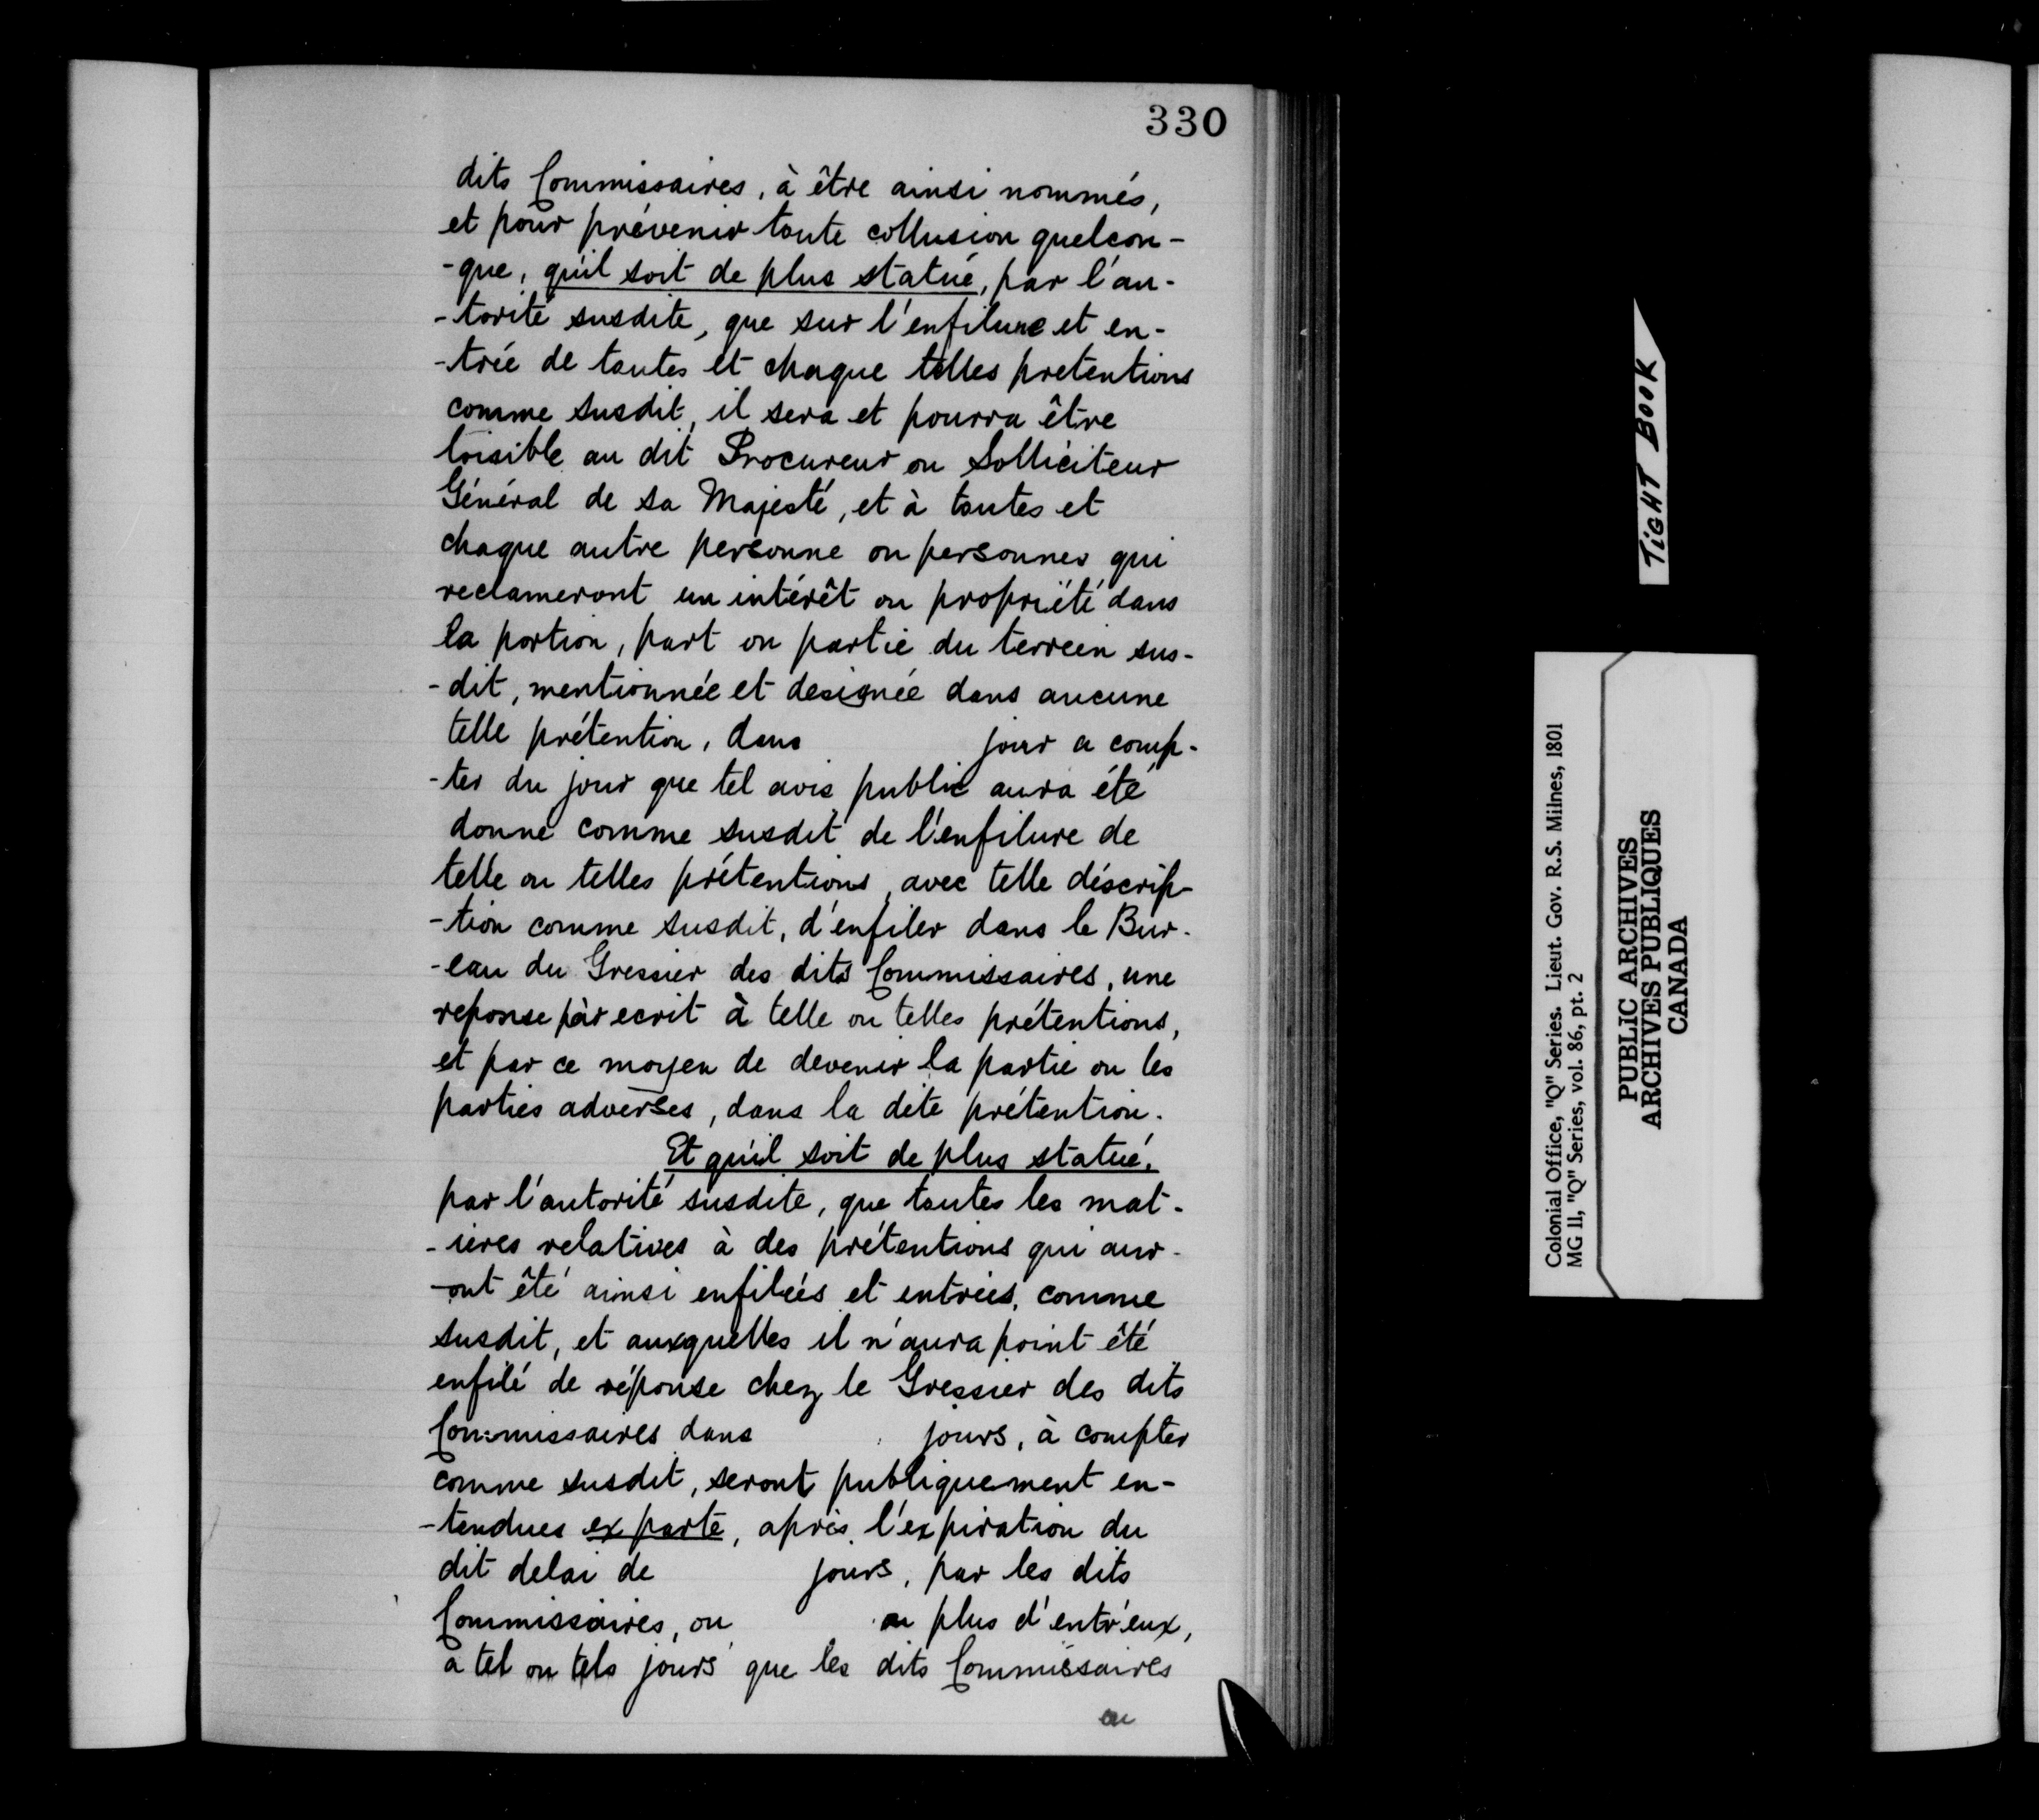 330
dits Commissaires, à être ainsi nommés,
et pour prévenir toute collusion quelcon-
-que, qu'il soit de plus statué, par l'au-
-torité susdite, que sur l'enfilure et en-
-trée de toutes et chaque telles pretentions
comme susdit, il sera et pourra être
loisible au dit Procureur ou Solliciteur
Général de sa Majesté, et à toutes et
chaque autre personne ou personnes qui
reclameront un intérêt ou propriété dans
la portion, part ou partie du terrein sus-
-dit, mentionnée et designée dans aucune
telle prétention, dans jour a comp-
-ter du jour que tel avis public aura été
donné comme susdit de l'enfilure de
telle ou telles prétentions, avec telle déscrip-
-tion comme susdit, d'enfiler dans le Bur-
-eau du Gressier des dits Commissaires, une
reponse pàr ecrit à telle ou telles prétentions,
et par ce moyen de devenir la partie ou les
parties adverses, dans la dite prétention.
Et qu'il soit de plus statué,
par l'autorité susdite, que toutes les mat-
-ières relatives à des prétentions qui aur-
-ont été ainsi enfilées et entrées, comme
susdit, et auxquelles il n'aura point été
enfilé de réponse chez le Gressier des dits
Commissaires dans jours, à compter
comme susdit, seront publiquement en-
-tendues ex parte, après l'expiration du
dit delai de jours, par les dits
Commissaires, ou ou plus d'entr'eux,
a tel ou tels jours que les dits Commissaires
ou
TIGHT BOOK
Colonial Office, "Q" Series. Lieut. Gov. R.S. Milnes, 1801
MG 11, "Q" Series, vol. 86, pt. 2
PUBLIC ARCHIVES
ARCHIVES PUBLIQUES
CANADA